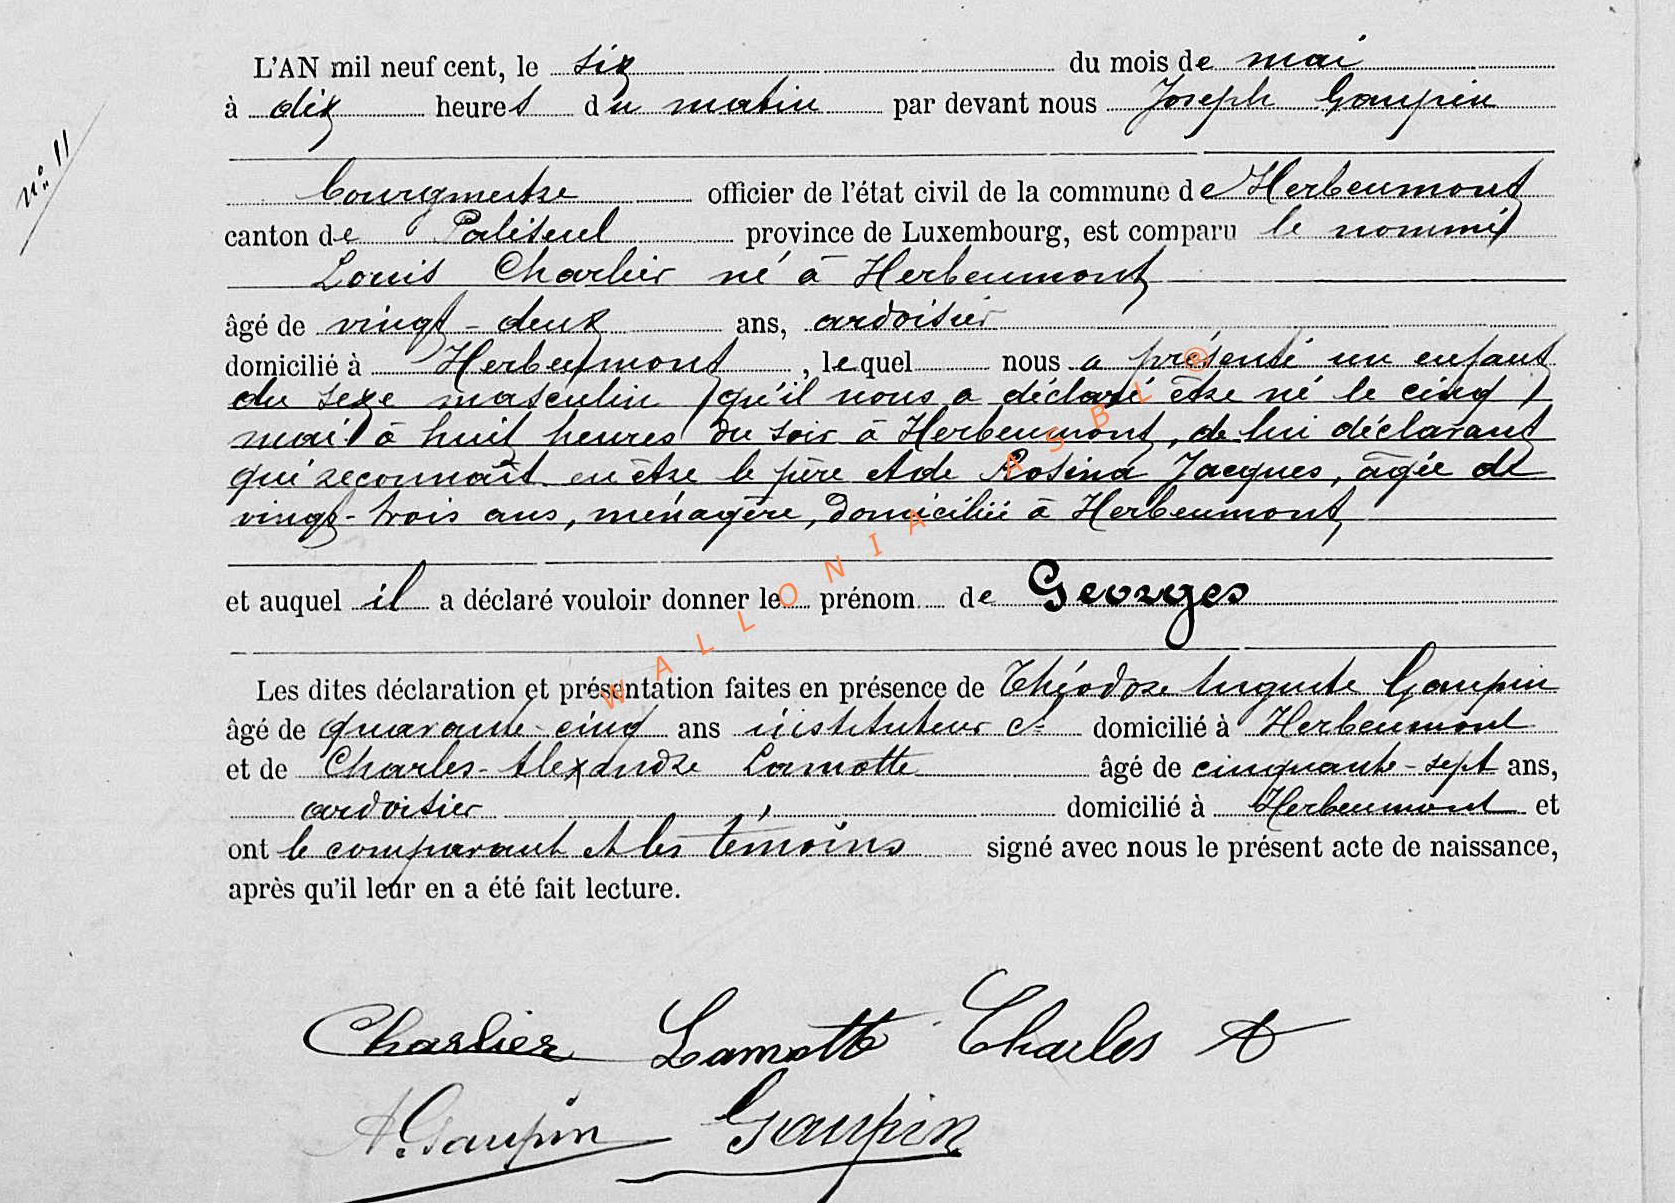 L'AN mil neuf cent, le six du mois de mai
à dix heures du matin par devant nous Joseph Gaupin
n° 11
bourgmestre officier de l'état civil de la commune de Herbeumont
canton de Paliseul province de Luxembourg, est comparu le nommé
Louis Charlier né à Herbeumont
âgé de vingt-deux ans, ardoisier
domicilié à Herbeumont, lequel nous a présenté un enfant
du sexe masculin qu'il nous a déclaré être né le cinq
mai à huit heures du soir à Herbeumont, de lui déclarant
qui reconnaît en être le père et de Rosina Jacques, âgée de
vingt-trois ans, ménagère, domiciliée à Herbeumont
et auquel il a déclaré vouloir donner le prénom de Georges
Les dites déclaration et présentation faites en présence de Théodore Auguste Gaupin
âgé de quarante-cinq ans instituteur cl domicilié à Herbeumont
et de Charles-Alexandre Lamotte âgé de cinquante-sept ans,
ardoisier domicilié à Herbeumont et
ont le comparant et les témoins signé avec nous le présent acte de naissance,
après qu'il leur en a été fait lecture.
Charlier Lamotte Charles A
A. Gaupin Gaupin
WALLONIA ASBL ®